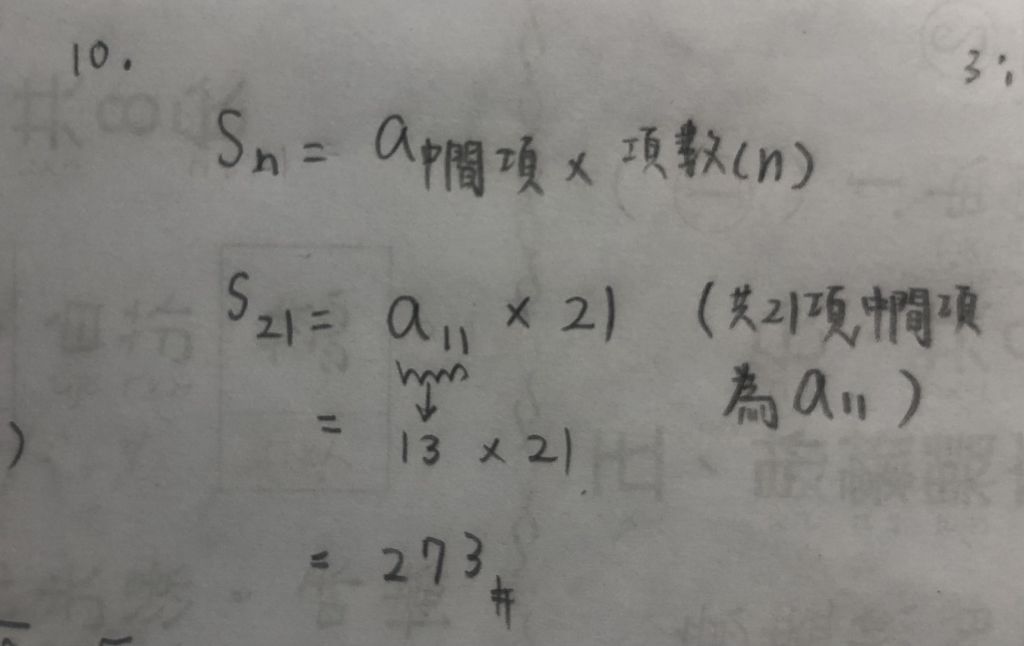 10.
3:
Sn = a中間項 × 項數(n)
S21 = a11 × 21 (共21項,中間項
為a11)
↓
= 13 × 21
)
= 273#